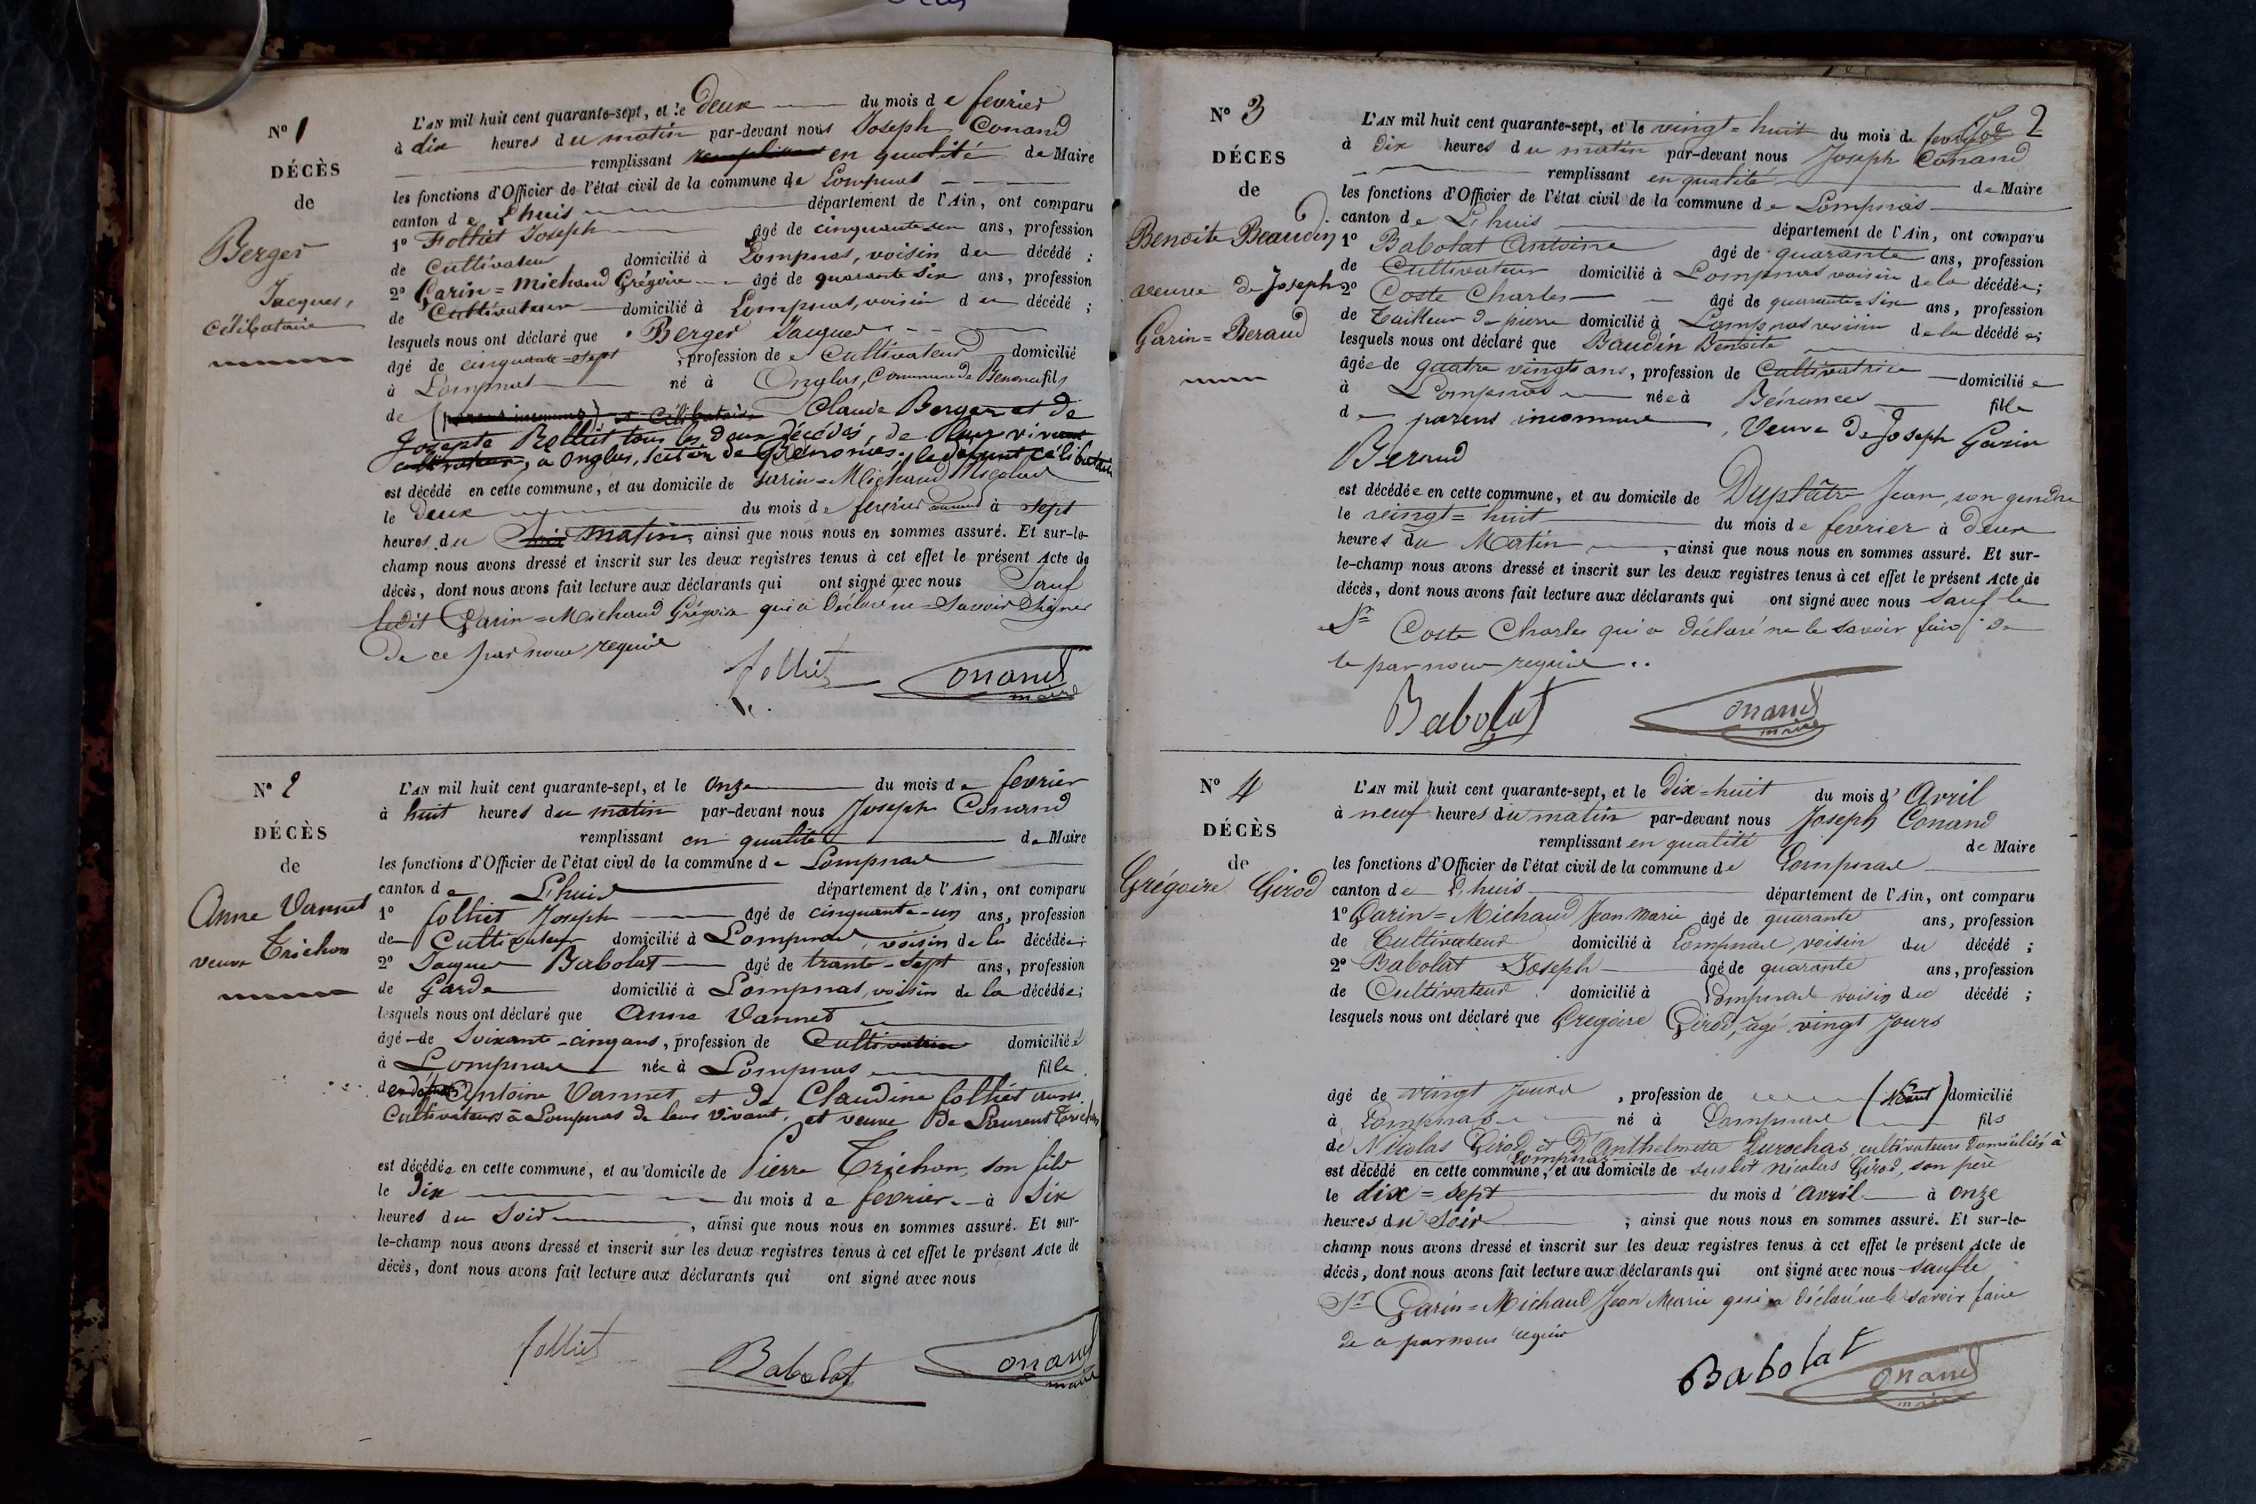 N° 1
DÉCÈS
de
Berger
Jacques,
Célibataire
L'AN mil huit cent quarante-sept, et le Deux du mois de fevrier
à dix heures du matin par-devant nous Joseph Conand
remplissant en qualité de Maire
les fonctions d'Officier de l'état civil de la commune de Lompnas
canton de Lhuis département de l'Ain, ont comparu
1° Folliet Joseph âgé de cinquante un ans, profession
de Cultivateur domicilié à Lompnas, voisin du décédé ;
2° Garin=Michaud Grégoire âgé de quarante six ans, profession
de Cultivateur domicilié à Lompnas, voisin du décédé ;
lesquels nous ont déclaré que Berger Jacques
âgé de cinquante=sept , profession de Cultivateur domicilié
à Lompnas né à Onglas, Commune de Benonces fils
de Claude Berger et de
Josepte Rolliet tous les deux décédés, de leur vivant
à Onglas, de Bénonces. le défunt célibataire
est décédé en cette commune, et au domicile de Garin=Michaud Nicolas
le Deux du mois de fevrier courant à sept
heures du matin, ainsi que nous nous en sommes assuré. Et sur-le-
champ nous avons dressé et inscrit sur les deux registres tenus à cet effet le présent Acte de
décès, dont nous avons fait lecture aux déclarants qui ont signé avec nous Sauf
ledit Garin=Michaud Grégoire qui a Déclaré ne Savoir Signer
De ce par nous requis
folliet Conand
maire
N° 2
DÉCÈS
de
Anne Vannet
veuve Trichon
L'AN mil huit cent quarante-sept, et le onze du mois de fevrier
à huit heures du matin par-devant nous Joseph Conand
remplissant en qualité de Maire
les fonctions d'Officier de l'état civil de la commune de Lompnas
canton de Lhuis département de l'Ain, ont comparu
1° folliet Joseph âgé de cinquante-un ans, profession
de Cultivateur domicilié à Lompnas, voisin de la décédée ;
2° Jacques Babolat âgé de trante-sept ans, profession
de Garde domicilié à Lompnas, voisin de la décédée ;
lesquels nous ont déclaré que Anne Vannet
âgé de Soixante-cinq ans, profession de Cultivatrice domiciliée
à Lompnas née à Lompnas fille
Antoine Vannet et de Claudine folliet
Cultivateurs à Lompnas de leur vivant, et veuve De Laurent Trichon
est décédée en cette commune, et au domicile de Pierre Trichon, son fils
le Dix du mois de fevrier à Six
heures du Soir , ainsi que nous nous en sommes assuré. Et sur-
le-champ nous avons dressé et inscrit sur les deux registres tenus à cet effet le présent Acte de
décès, dont nous avons fait lecture aux déclarants qui ont signé avec nous
folliet Babolat Conand
maire
2
N° 3
DÉCÈS
de
Benoite Beaudin
veuve de Joseph
Garin=Beraud
L'AN mil huit cent quarante-sept, et le vingt=huit du mois de fevrier
à Dix heures du matin par-devant nous Joseph Conand
remplissant en qualité de Maire
les fonctions d'Officier de l'état civil de la commune de Lompnas
canton de Lhuis département de l'Ain, ont comparu
1° Babolat Antoine âgé de quarante ans, profession
de Cultivateur domicilié à Lompnas voisin de la décédée ;
2° Coste Charles âgé de quarante=six ans, profession
de Tailleur de pierre domicilié à Lompnas voisin de la décédée ;
lesquels nous ont déclaré que Baudin Benoite
âgée de quatre vingts ans, profession de Cultivatrice domiciliée
à Lompnas née à Bénonces fille
de parens inconnus, Veuve De Joseph Garin
Beraud
est décédée en cette commune, et au domicile de Duplâtre Jean, son gendre
le vingt=huit du mois de fevrier à deux
heures du Matin , ainsi que nous nous en sommes assuré. Et sur-
le-champ nous avons dressé et inscrit sur les deux registres tenus à cet effet le présent Acte de
décès, dont nous avons fait lecture aux déclarants qui ont signé avec nous sauf le
Sr Coste Charles qui a déclaré ne le savoir faire de
ce par nous requis
Babolat Conand
maire
N° 4
DÉCÈS
de
Grégoire Girod
L'AN mil huit cent quarante-sept, et le Dix=huit du mois d'Avril
à neuf heures du matin par-devant nous Joseph Conand
remplissant en qualité de Maire
les fonctions d'Officier de l'état civil de la commune de Lompnas
canton de Lhuis département de l'Ain, ont comparu
1° Garin=Michaud Jean Marie âgé de quarante ans, profession
de Cultivateur domicilié à Lompnas, voisin du décédé ;
2° Babolat Joseph âgé de quarante ans, profession
de Cultivateur domicilié à Lompnas voisin du décédé ;
lesquels nous ont déclaré que Gregoire Girod, âgé vingt Jours
âgé de vingt Jours , profession de (Néant) domicilié
à Lompnas né à Lompnas fils
de Nicolas Girod et D'Anthelmette Durochas, cultivateurs domiciliés à
Lompnas
est décédé en cette commune, et au domicile de susdit Nicolas Girod, son père
le dix=sept du mois d'avril à onze
heures du Soir ; ainsi que nous nous en sommes assuré. Et sur-le-
champ nous avons dressé et inscrit sur les deux registres tenus à cet effet le présent Acte de
décès, dont nous avons fait lecture aux déclarants qui ont signé avec nous sauf le
Sr Garin=Michaud Jean Marie qui a déclaré ne le savoir faire
de ce par nous requis
Babolat Conand
maire